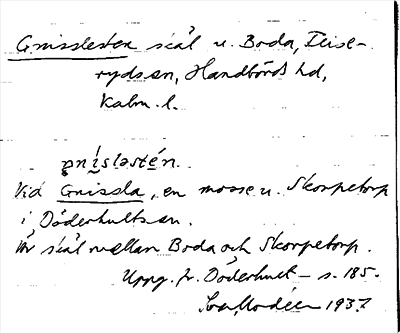 Gnisslesten skäl u. Boda, Flise-
rydssn, Handbörds hd,
Kalm. l.
gníslastén.
Vid Gnissla, en mosse u. Skorpetorp
i Döderhultssn.
Är skäl mellan Boda och Skorpetorp.
Uppg. fr. Döderhult – s. 185.
Modéer 1937